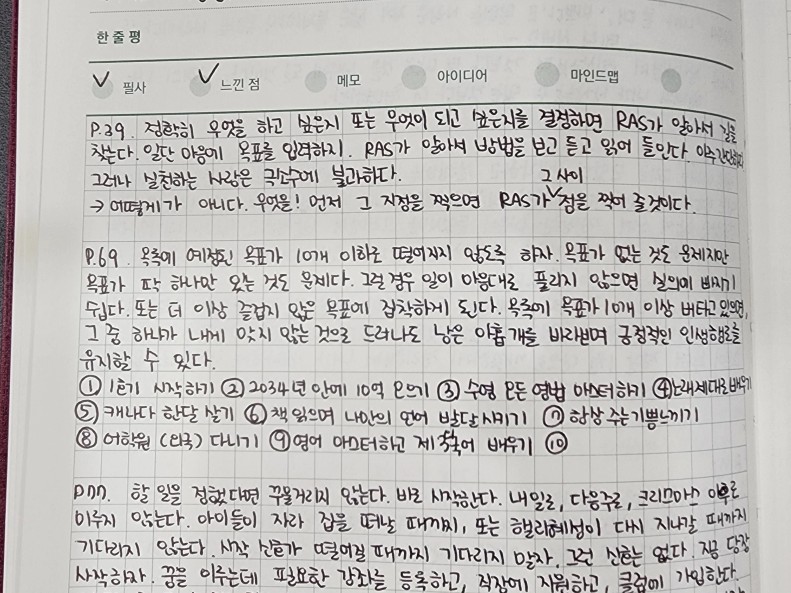 한 줄 평
필사 느낀 점 메모 아이디어 마인드맵
P.39. 정확히 무엇을 하고 싶은지 또는 무엇이 되고 싶은지를 결정하면 RAS가 알아서 길을
찾는다. 일단 마음에 목표를 입력하지. RAS가 알아서 방법을 보고 듣고 읽어 들인다. 아주 간단하다
그러나 실천하는 사람은 극소수에 불과하다.
그 사이
→ 어떻게가 아니다. 무엇을! 먼저 그 지점을 찍으면 RAS가 점을 찍어 줄것이다.
P.69. 목록에 예정된 목표가 10개 이하로 떨어지지 않도록 하자. 목표가 없는 것도 문제지만
목표가 딱 하나만 있는 것도 문제다. 그럴 경우 일이 마음대로 풀리지 않으면 실의에 빠지기
쉽다. 또는 더 이상 즐겁지 않은 목표에 집착하게 된다. 목록에 목표가 10개 이상 버티고 있으면,
그 중 하나가 내게 맞지 않는 것으로 드러나도 남은 아홉개를 바라보며 긍정적인 인생행로를
유지할 수 있다.
① 1일1기 시작하기 ② 2034년 안에 10억 모으기 ③ 수영 모든 영법 마스터하기 ④ 노래 제대로 배우기
⑤ 캐나다 한달 살기 ⑥ 책 읽으며 나만의 언어 발달시키기 ⑦ 항상 주는 기쁨 느끼기
⑧ 어학원 (외국) 다니기 ⑨ 영어 마스터하고 제2외국어 배우기 ⑩
P.77. 할 일을 정했다면 꾸물거리지 않는다. 바로 시작한다. 내일로, 다음주로, 크리스마스 이후로
미루지 않는다. 아이들이 자라 집을 떠날 때까지, 또는 핼리혜성이 다시 지나갈 때까지
기다리지 않는다. 시작 신호가 떨어질 때까지 기다리지 말자. 그런 신호는 없다. 지금 당장
시작하자. 꿈을 이루는데 필요한 강좌를 등록하고, 직장에 지원하고, 클럽에 가입한다.